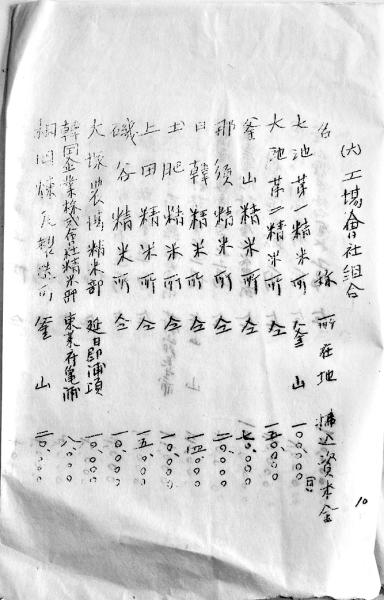 (六) 工場會社組合
名 称 所在地 拂込資本金
大池第一精米所 釜山 一〇〇、〇〇〇円
大池第二精米所 仝 五〇、〇〇〇
釜山精米所 仝 七〇、〇〇〇
那須精米所 仝 二〇、〇〇〇
日韓精米所 仝 一四、〇〇〇
土肥精米所 仝 一〇、〇〇〇
上田精米所 仝 一五、〇〇〇
磯谷精米所 仝 一〇、〇〇〇
大塚農場精米部 延日郡浦項 一〇、〇〇〇
韓国企業株式会社精米部 東莱府亀浦 八、〇〇〇
煉瓦製造所 釜山 二〇、〇〇〇
10